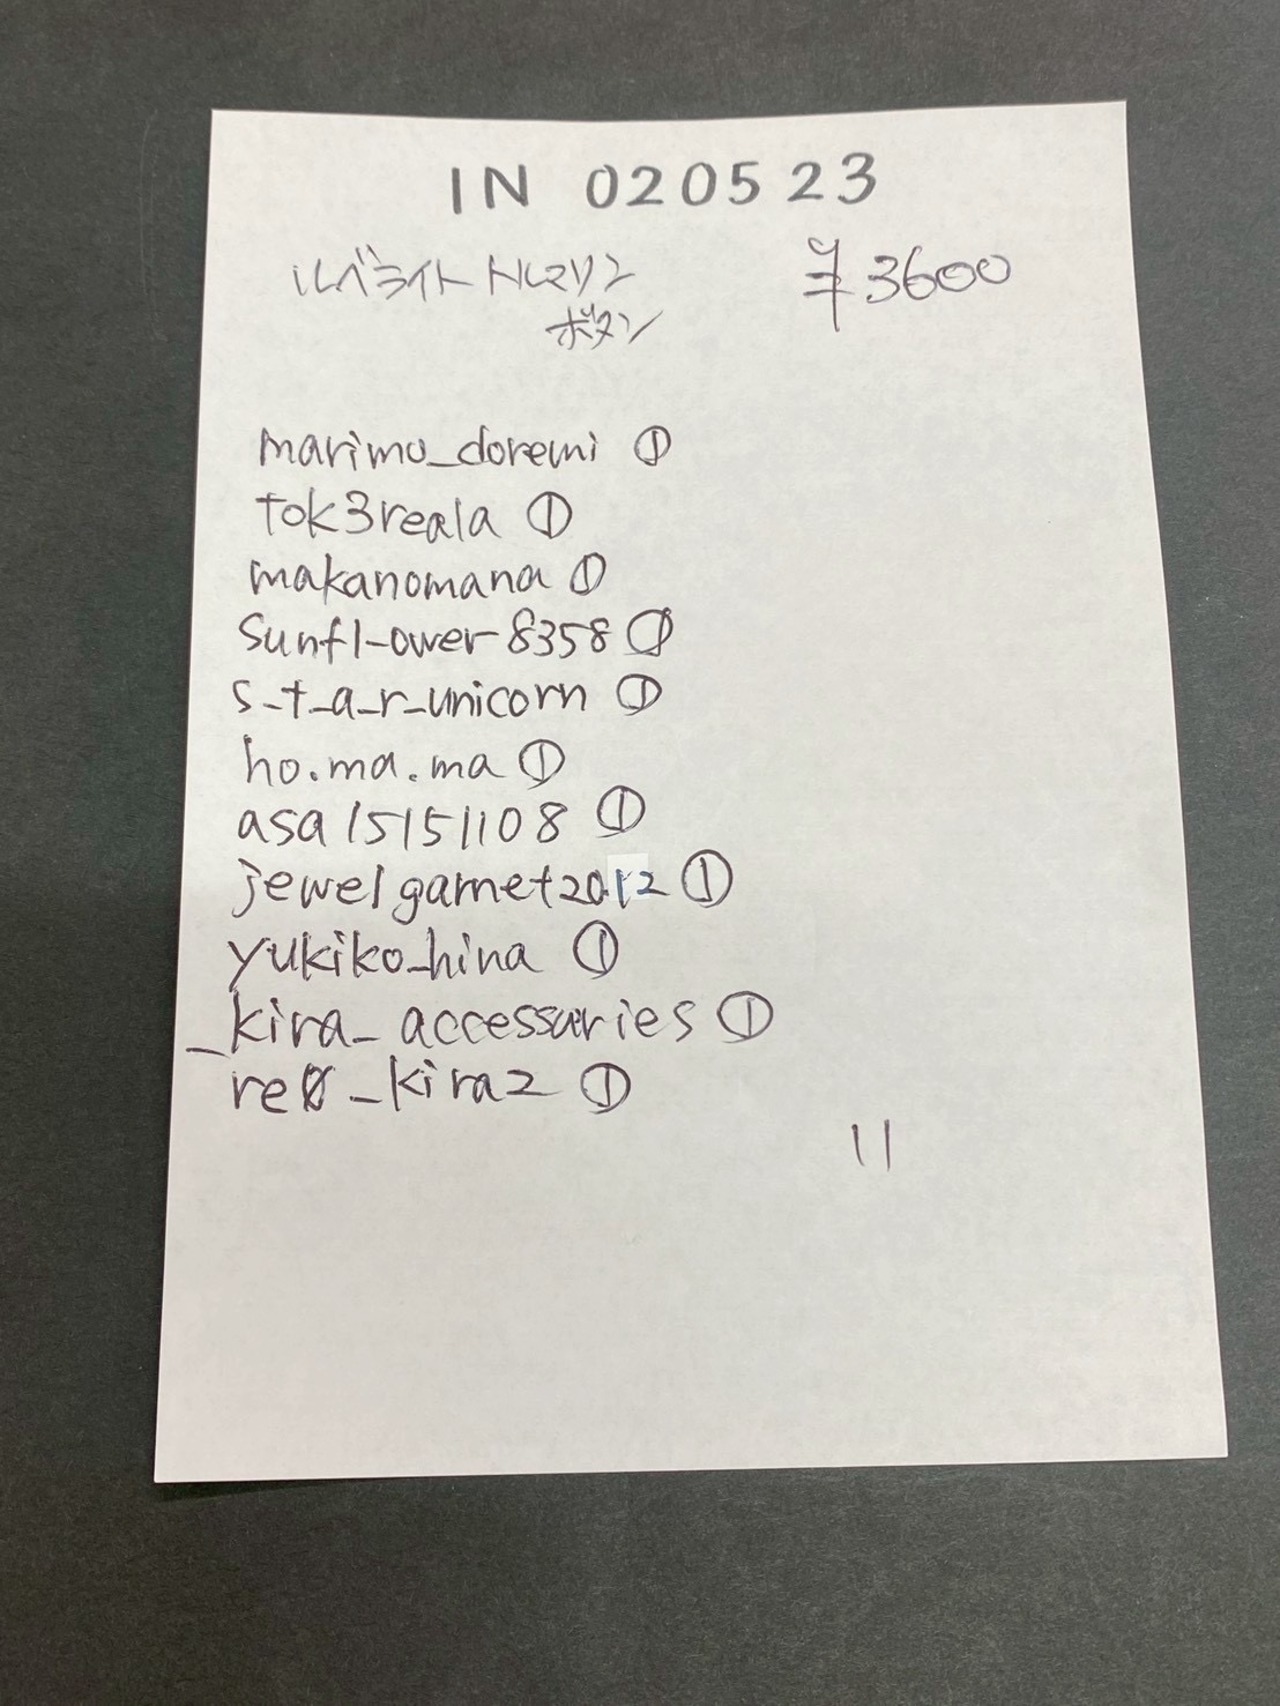 IN 020523
ルベライトトルマリン ¥3600
ボタン
marimo_doremi ①
tok3reala ①
makanomana ①
sunfl-ower8358 ①
s_t_a_r_unicorn ①
ho.ma.ma ①
asa15151108 ①
jewelgarnet2012 ①
yukiko_hina ①
_kira_accessuries ①
re0_kira2 ①
11